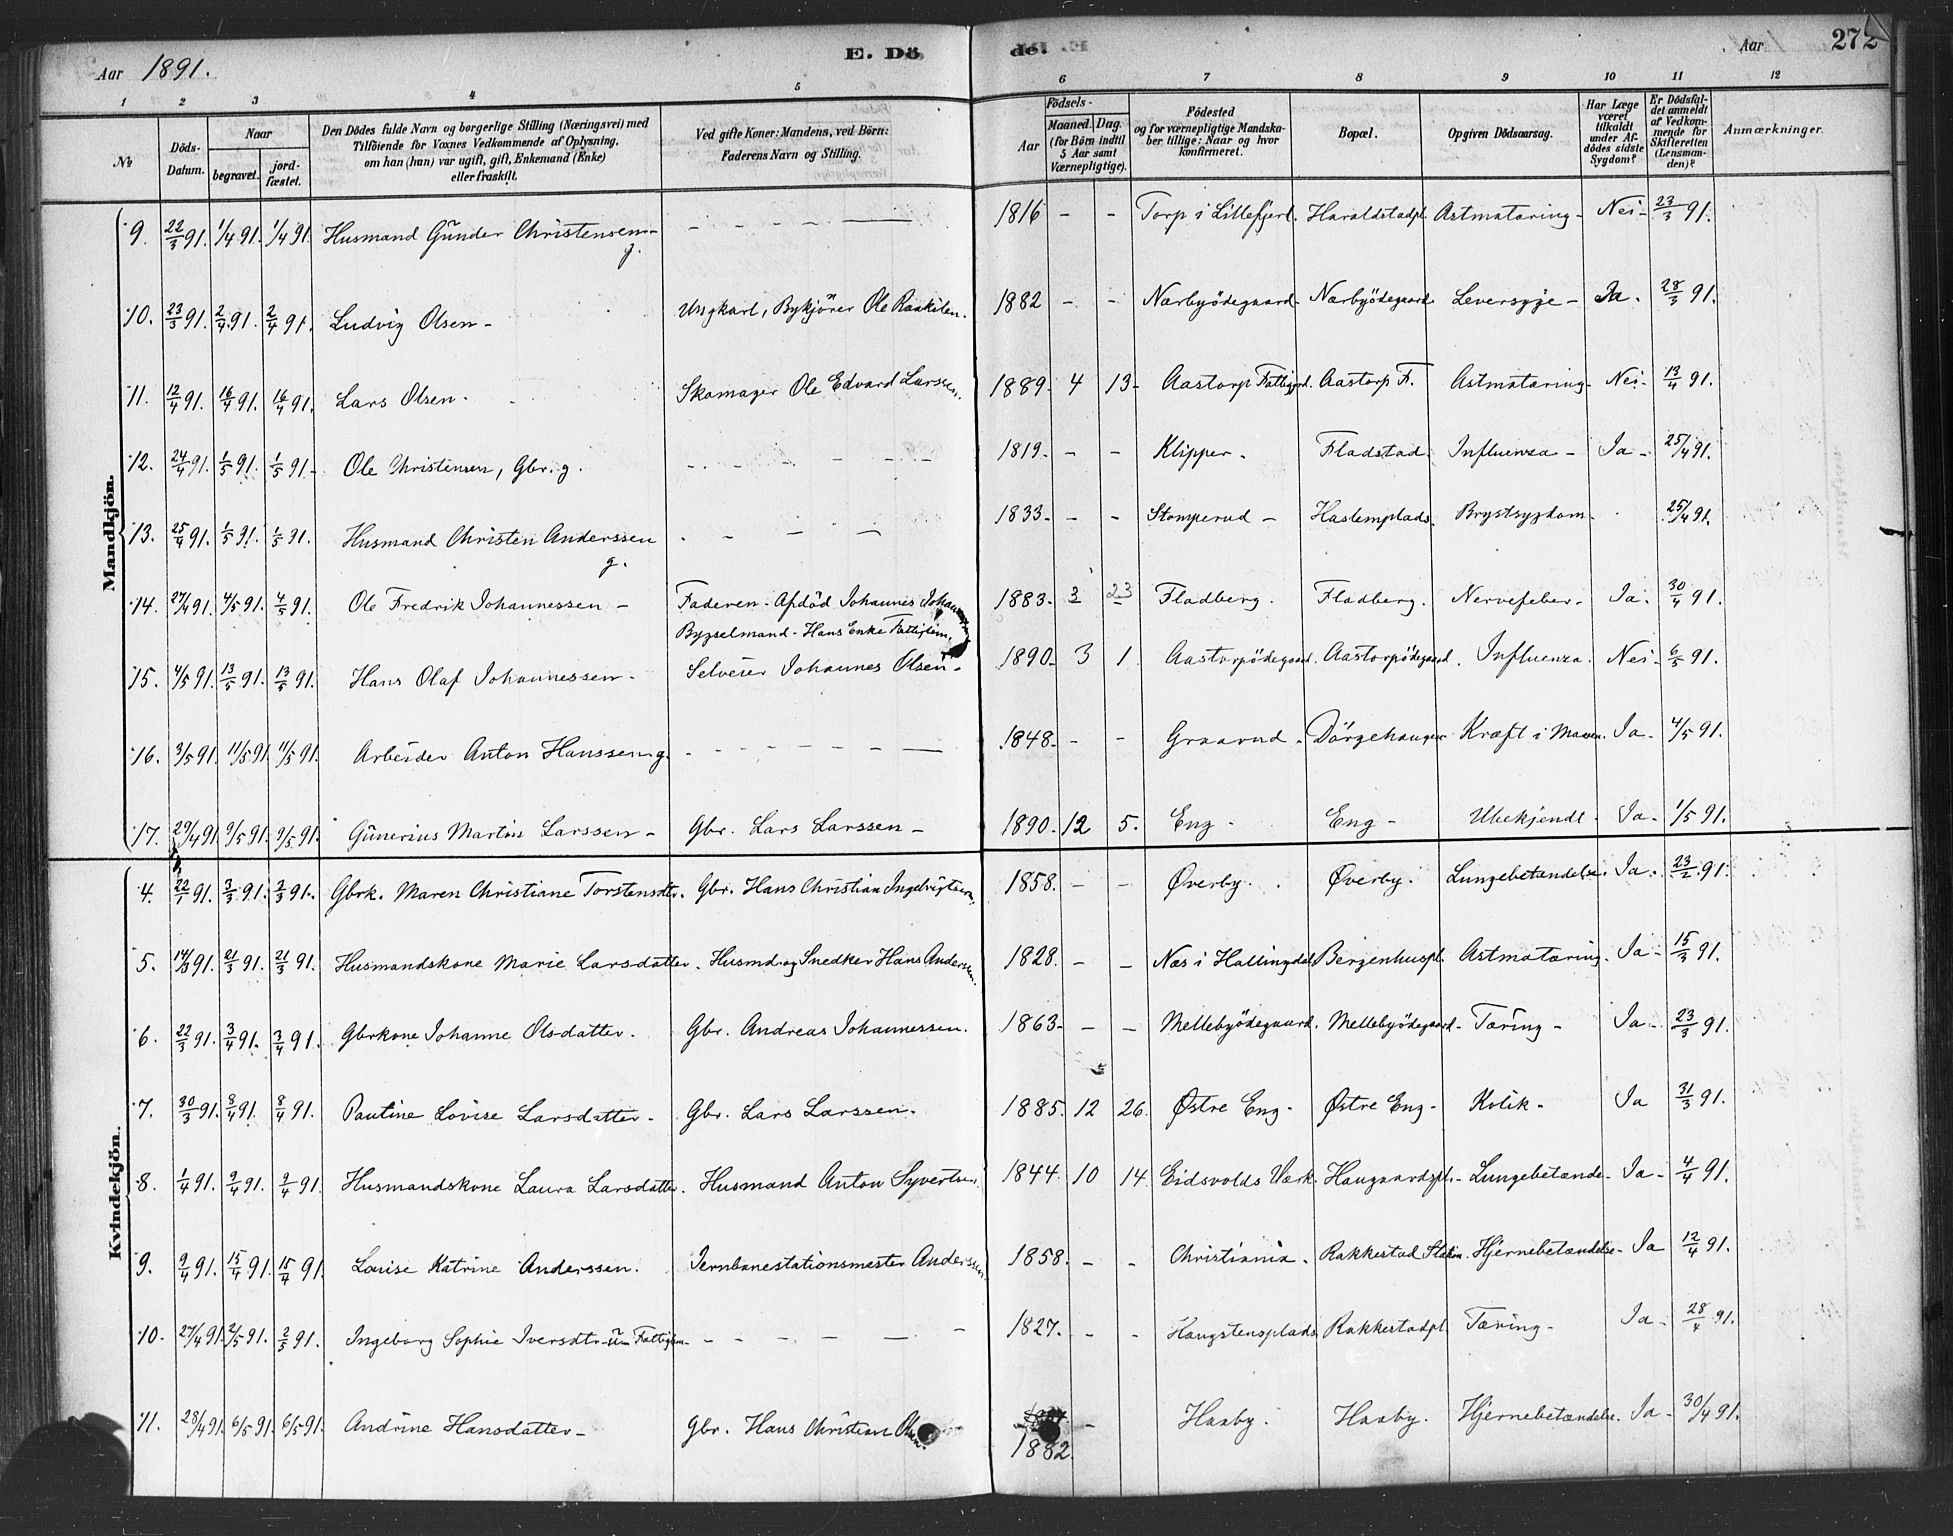 Aar 1891. E. Dö de. Aar 272
1 2 3 4 5 6 7 8 9 10 11 12
No
Döds-Datum.
Naar
begravet.
jord-fæstet.
Den Dödes fulde Navn og borgerlige Stilling (Næringsvei) med
Tilföiende for Voxnes Vedkommende af Oplysning,
om han (hun) var ugift, gift, Enkemand (Enke)
eller fraskilt.
Ved gifte Koner: Mandens, ved Börn:
Faderens Navn og Stilling.
Födsels-
Aar
Maaned. Dag.
(for Börn indtil
5 Aar samt
Værnepligtige).
Födested
og for værnepligtige Mandska-
ber tillige: Naar og hvor
konfirmeret.
Bopæl.
Opgiven Dödsaarsag.
Har Læge
været
tilkaldt
under Af-
dödes sidste
Sygdom?
Er Dödsfal-
det anmeldt
af Vedkom-
mende for
Skifteretten
(Lensman-
den)?
Anmærkninger.
Mandkjön.
9. 22/3 91. 1/4 91. 1/4 91. Husmand Gunder Christensen - g. - - - - 1816 - - Torp i Lillefjerd. Haraldstadpl. Astmataring - Nei - 23/3 91.
10. 23/3 91. 2/4 91. 2/4 91. Ludvig Olsen - Ungkarl, Bykjörer Ole Raakilen. 1882 - - Nærbyödegaard. Nærbyödegaard. Leversyge - Ja. 28/3 91.
11. 12/4 91. 16/4 91. 16/4 91. Lars Olsen. Skomager Ole Edvard Larssen. 1889. 4 13 - Aastorp Fattiggrd. Aastorp F. Astmataring - Nei - 13/4 91.
12. 24/4 91. 1/5 91. 1/5 91 - Ole Christensen, Gbr. g. - - - - 1819. - - Klipper - Fladstad. Influenza - Ja - 25/4 91.
13. 25/4 91. 1/5 91. 1/5 91. Husmand Christen Anderssen g. - - - - 1833 - - - Stomperud - Haslemplads. Brystsygdom. 25/4 91.
14. 27/4 91. 4/5 91. 4/5 91. Ole Fredrik Johannessen - Faderen - Afdöd Johannes
Bygselmand - Hans Enke Fattiglem. 1883. 3 23 Fladberg. Fladberg. Nervefeber. Ja. 30/4 91.
15. 4/5 91. 13/5 91. 13/5 91. Hans Olaf Johannessen - Selveier Johannes Olsen - 1890. 3 1 Aastorpödegaard. Aastorpödegaard. Influenza. Nei - 6/5 91.
16. 3/5 91. 11/5 91. 11/5 91. Arbeider Anton Hanssen g. - - - - 1848. - - Graarud. Dörgehaugen Kræft i Maven. Ja - 4/5 91.
17. 29/4 91. 9/5 91. 9/5 91. Gunerius Martin Larssen - Gbr. Lars Larssen - 1890. 12 5. Eng - Eng - Ubekjendt. Ja - 1/5 91.
Kvindekjön.
4. 22/1 91. 3/3 91. 3/3 91. Gbrk. Maren Christiane Torstensdtr. Gbr. Hans Christian Ingebrigtsen. 1858. - - Øverby. Øverby. Lungebetændelse. Ja. 23/2 91.
5. 14/3 91. 21/3 91. 21/3 91. Husmandskone Marie Larsdatter. Husmd. og Snedker Hans Anderssen. 1828. - - Næs i Hallingdal. Bergenhuspl. Astmatæring. Ja - 15/3 91.
6. 22/3 91. 3/4 91. 3/4 91. Gbrkone Johanne Olsdatter. Gbr. Andreas Johannessen. 1863 - - - Mellebyödegaard. Mellebyödegaard - Tæring - Ja - 23/3 91.
7. 30/3 91. 8/4 91. 8/4 91. Pauline Lovise Larsdatter - Gbr. Lars Larssen. 1885. 12 26. Østre Eng - Østre Eng - Kolik. Ja 31/3 91.
8. 1/4 91. 9/4 91. 9/4 91. Husmandskone Laura Larsdatter. Husmand Anton Syvertsen. 1844. 10 14. Eidsvolds Værk. Haugaardspl. - Lungebetænde - Ja - 4/4 91.
9. 9/4 91. 15/4 91. 15/4 91. Louise Katrine Anderssen. Jernbanestationsmester Anderssen. 1858. - - Christiania. Rakkestad Station. Hjernebetændelse - Ja 12/4 91.
10. 27/4 91. 2/5 91. 2/5 91. Ingeborg Sophie Iversdtr - u - Fattiglem - - - - 1827. - - Haugstensplads. Rakkestadpl. Tæring - Ja - 28/4 91.
11. 28/4 91. 6/5 91. 6/5 91. Andrine Hansdatter - Gbr. Hans Christian Olsen. 1882. - Haaby. Haaby. Hjernebetændelse. Ja - 30/4 91.